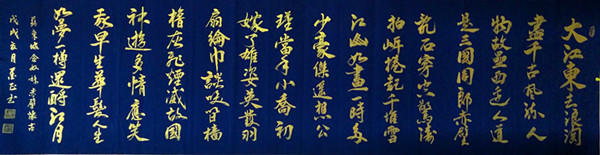 大江東去浪淘
盡千古風流人
物故壘西邊人道
是三國周郎赤壁
亂石穿空驚濤
拍岸捲起千堆雪
江山如畫一時多
少豪傑遙想公
瑾當年小喬初
嫁了雄姿英發羽
扇綸巾談笑間檣
櫓灰飛煙滅故國
神遊多情應笑
我早生華髮人生
如夢一樽還酹江月
蘇東坡念奴嬌赤壁懷古
戊戌五月